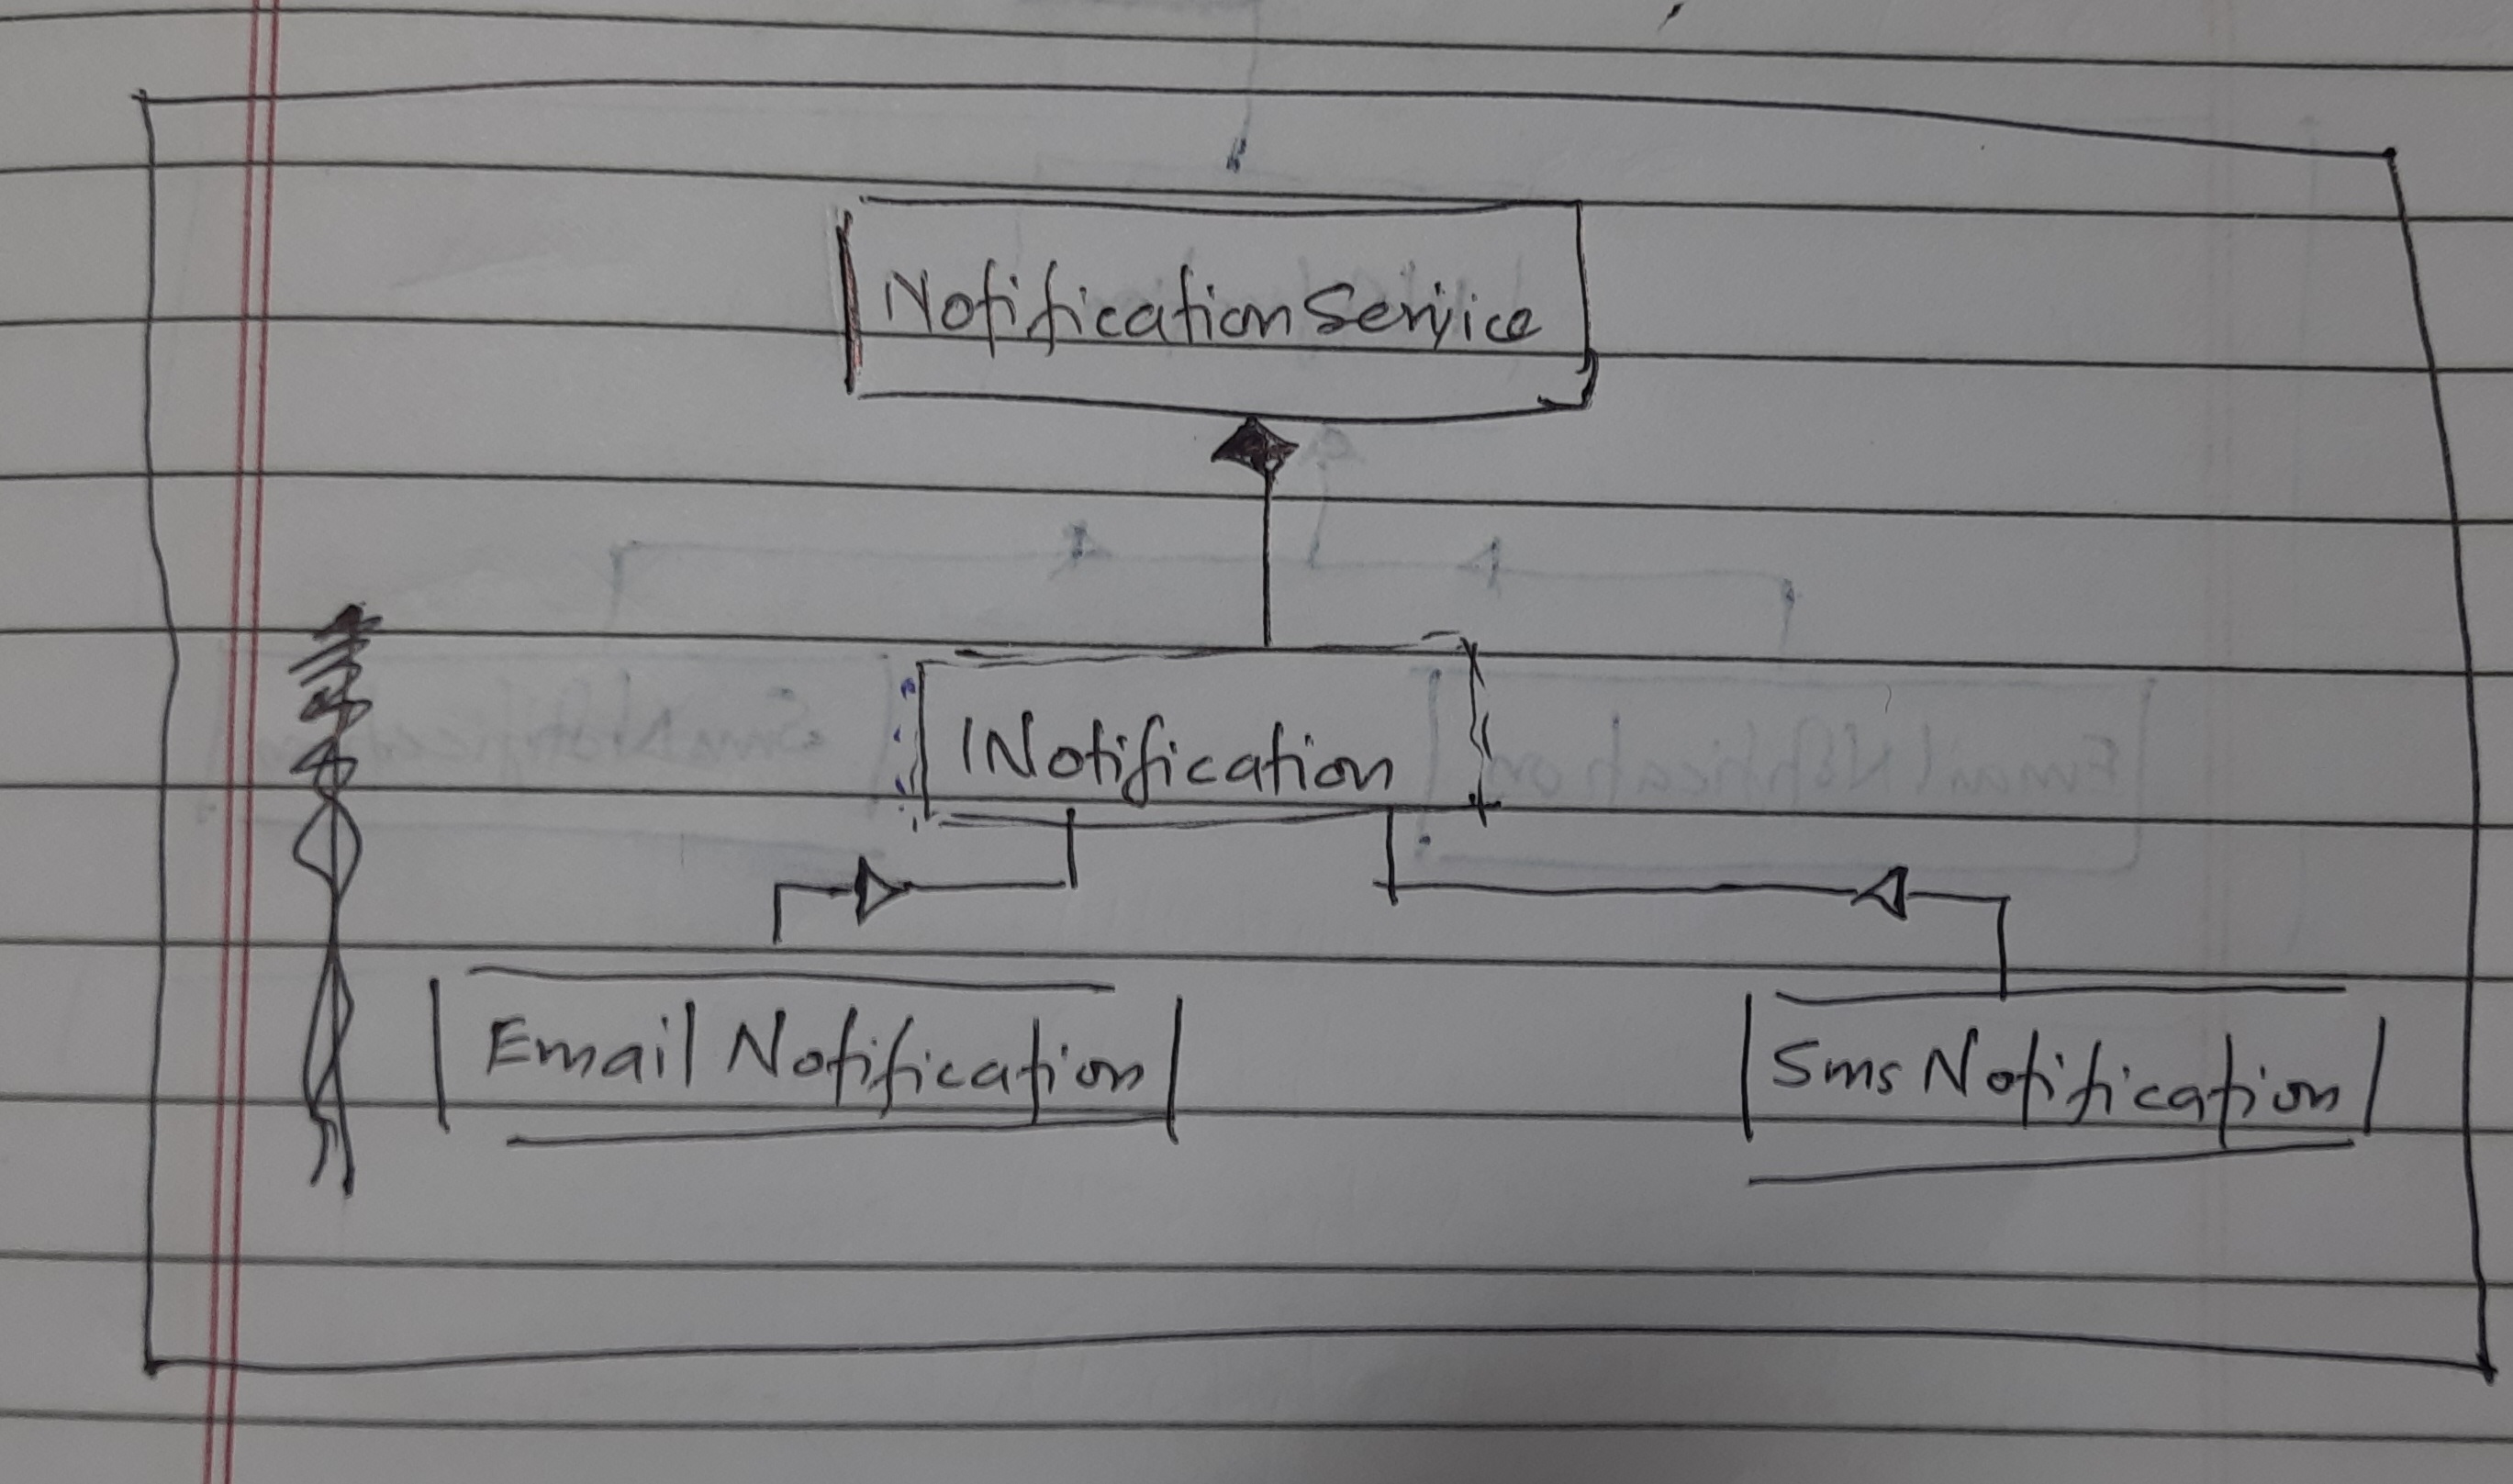 NotificationService
INotification
Email Notification
Sms Notification